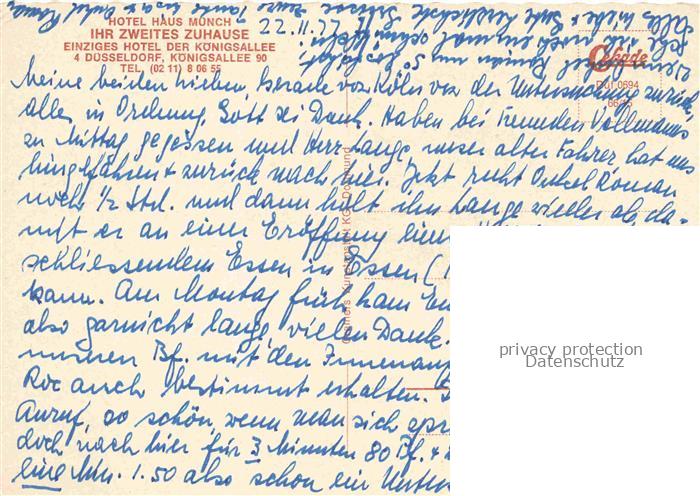 HOTEL HAUS MÜNCH
IHR ZWEITES ZUHAUSE
EINZIGES HOTEL DER KÖNIGSALLEE
4 DÜSSELDORF, KÖNIGSALLEE 90
TEL. (02 11) 8 06 55
22.11.77
Cekade
Düf 0694
Meine beiden Lieben, Gerade von Köln von der Untersuchung zurück,
alles in Ordnung, Gott sei Dank. Haben bei Freunden Vollmanns
zu Mittag gegessen und Herr Lange unser alter Fahrer hat uns
hingefahren + zurück nach hier. Jetzt ruht Onkel Roman
noch 1/2 Std. und dann holt ihn Lange wieder ab da-
mit er an einer Eröffnung einer
schliessendem Essen in Essen (
kann. Am Montag früh kam Eu
also garnicht lange, vielen Dank.
unseren Bf. mit den Innenauf
Roc auch bestimmt erhalten.
Anruf, so schön, wenn man sich spr
doch nach hier für 3 Minuten 80 Pf. +
eine Min. 1.50 also schon ein Unters
privacy protection
Datenschutz